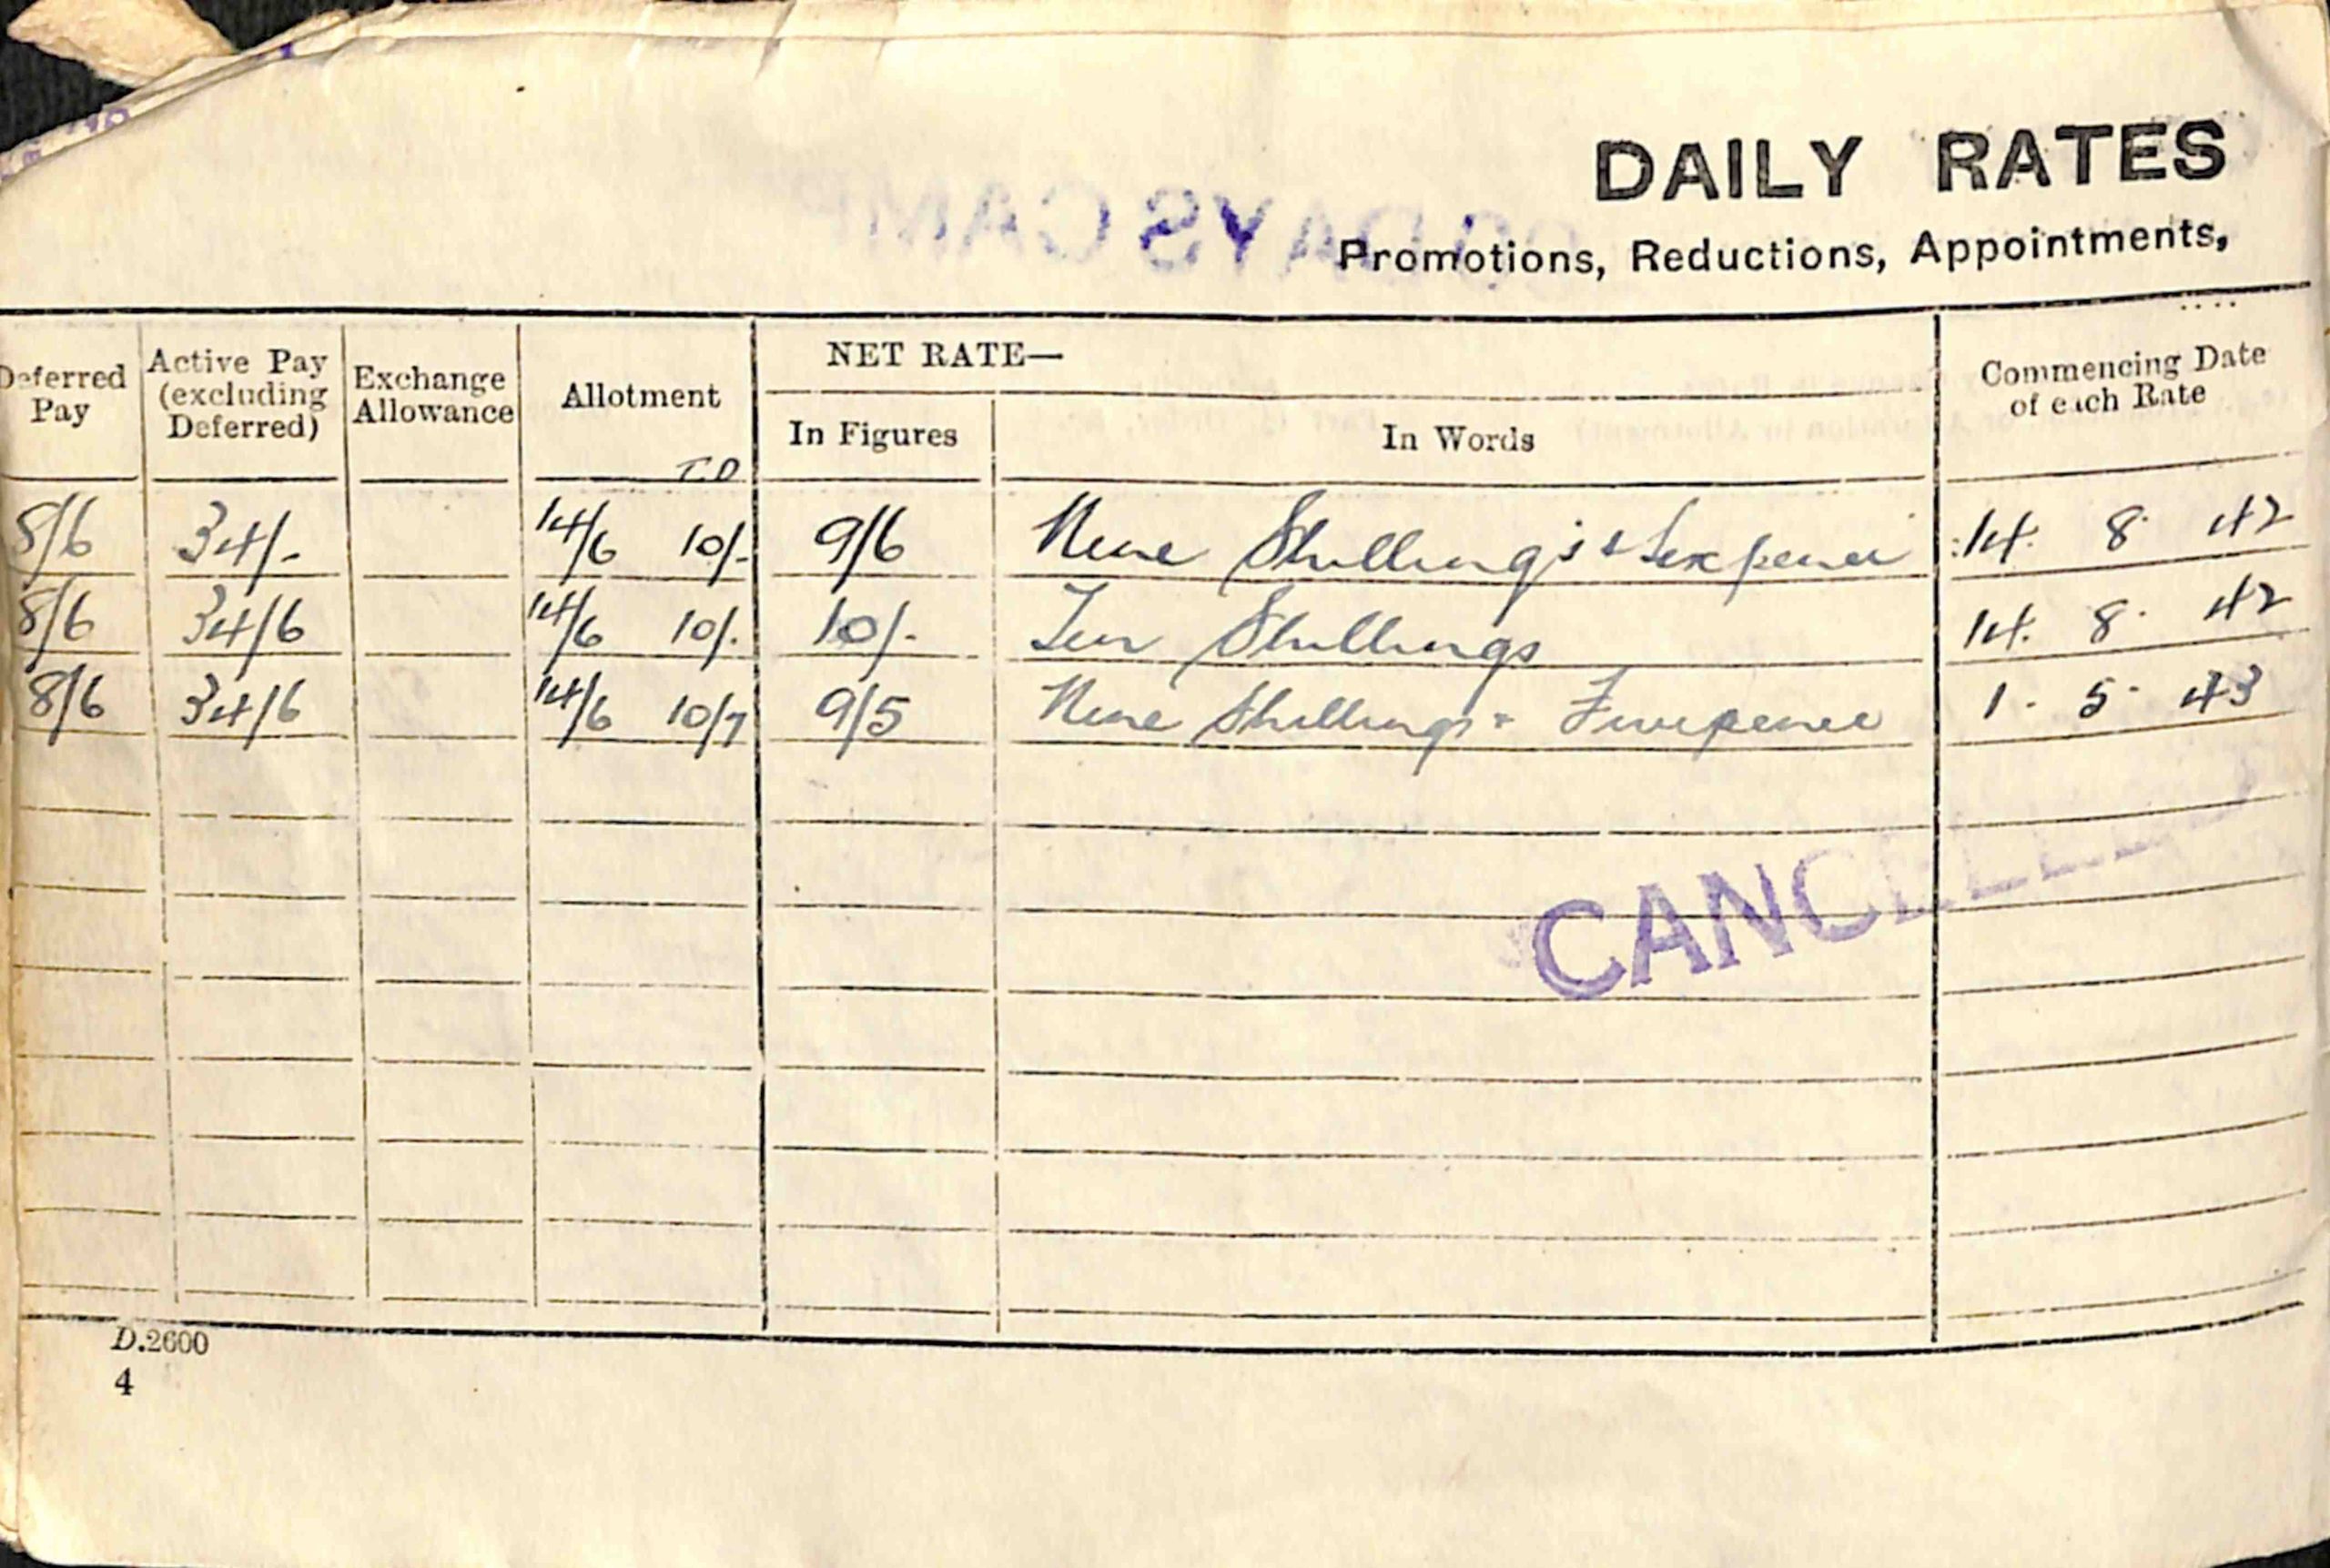 DAILY RATES
DAYS CAMP
Promotions, Reductions, Appointments,
Deferred Pay Active Pay (excluding Deferred) Exchange Allowance Allotment NET RATE— In Figures In Words Commencing Date of each Rate
8/6 34/- 14/6 10/- 9/6 Nine Shillings & Sixpence 14. 8. 42
8/6 34/6 14/6 10/- 10/- Ten Shillings 14. 8. 42
8/6 34/6 14/6 10/7 9/5 Nine Shillings & Fivepence 1. 5. 43
CANCELL
D.2600
4